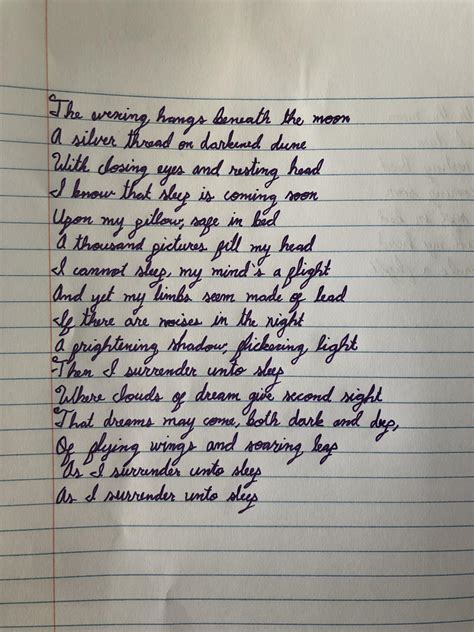 The evening hangs beneath the moon
A silver thread on darkened dune
With closing eyes and resting head
I know that sleep is coming soon
Upon my pillow, safe in bed
A thousand pictures fill my head
I cannot sleep, my mind's a flight
And yet my limbs seem made of lead
If there are noises in the night
A frightening shadow, flickering light
Then I surrender unto sleep
Where clouds of dream give second sight
That dreams may come, both dark and deep,
Of flying wings and soaring leap
As I surrender unto sleep
As I surrender unto sleep